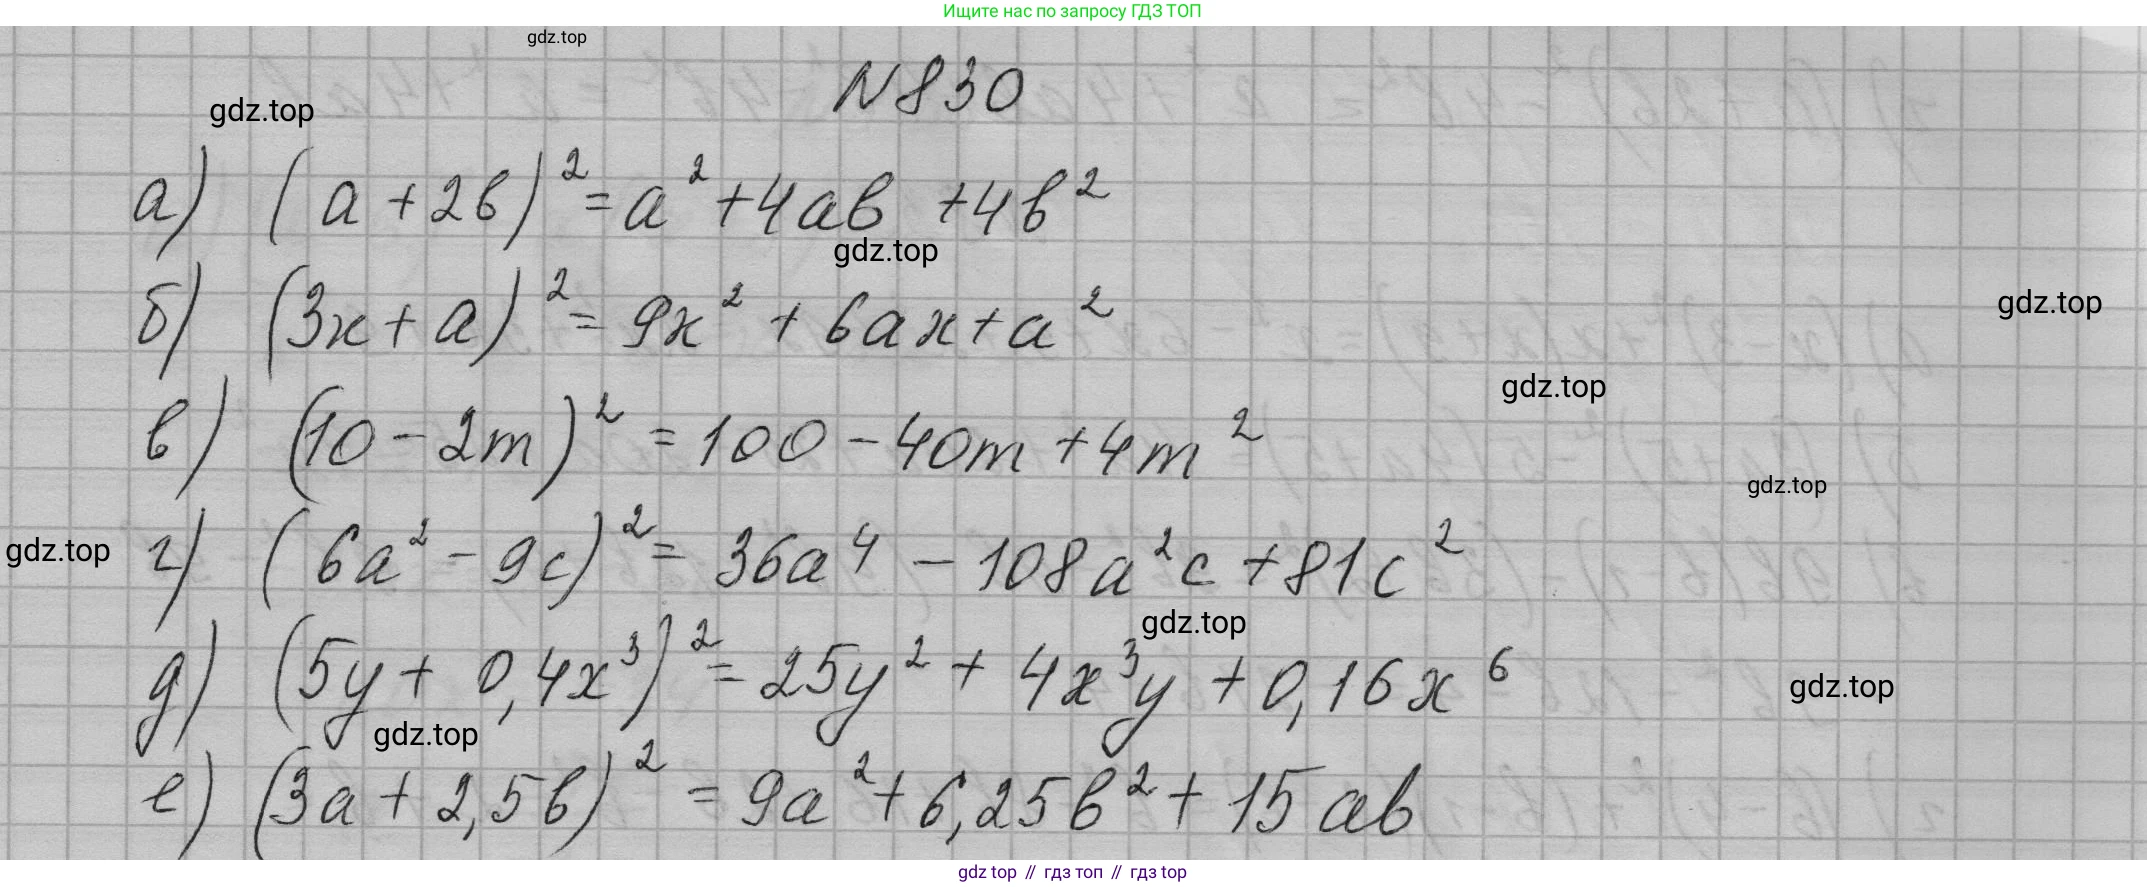 Ищите нас по запросу ГДЗ ТОП
gdz.top
N830
gdz.top
а) (a+2b)²=a²+4ab+4b²
gdz.top
б) (3x+a)²=9x²+6ax+a²
gdz.top
gdz.top
в) (10-2m)²=100-40m+4m²
gdz.top
г) (6a²-9c)²=36a⁴-108a²c+81c²
gdz.top
gdz.top
д) (5y+0,4x³)²=25y²+4x³y+0,16x⁶
gdz.top
gdz.top
е) (3a+2,5b)²=9a²+6,25b²+15ab
gdz top // гдз топ // гдз top